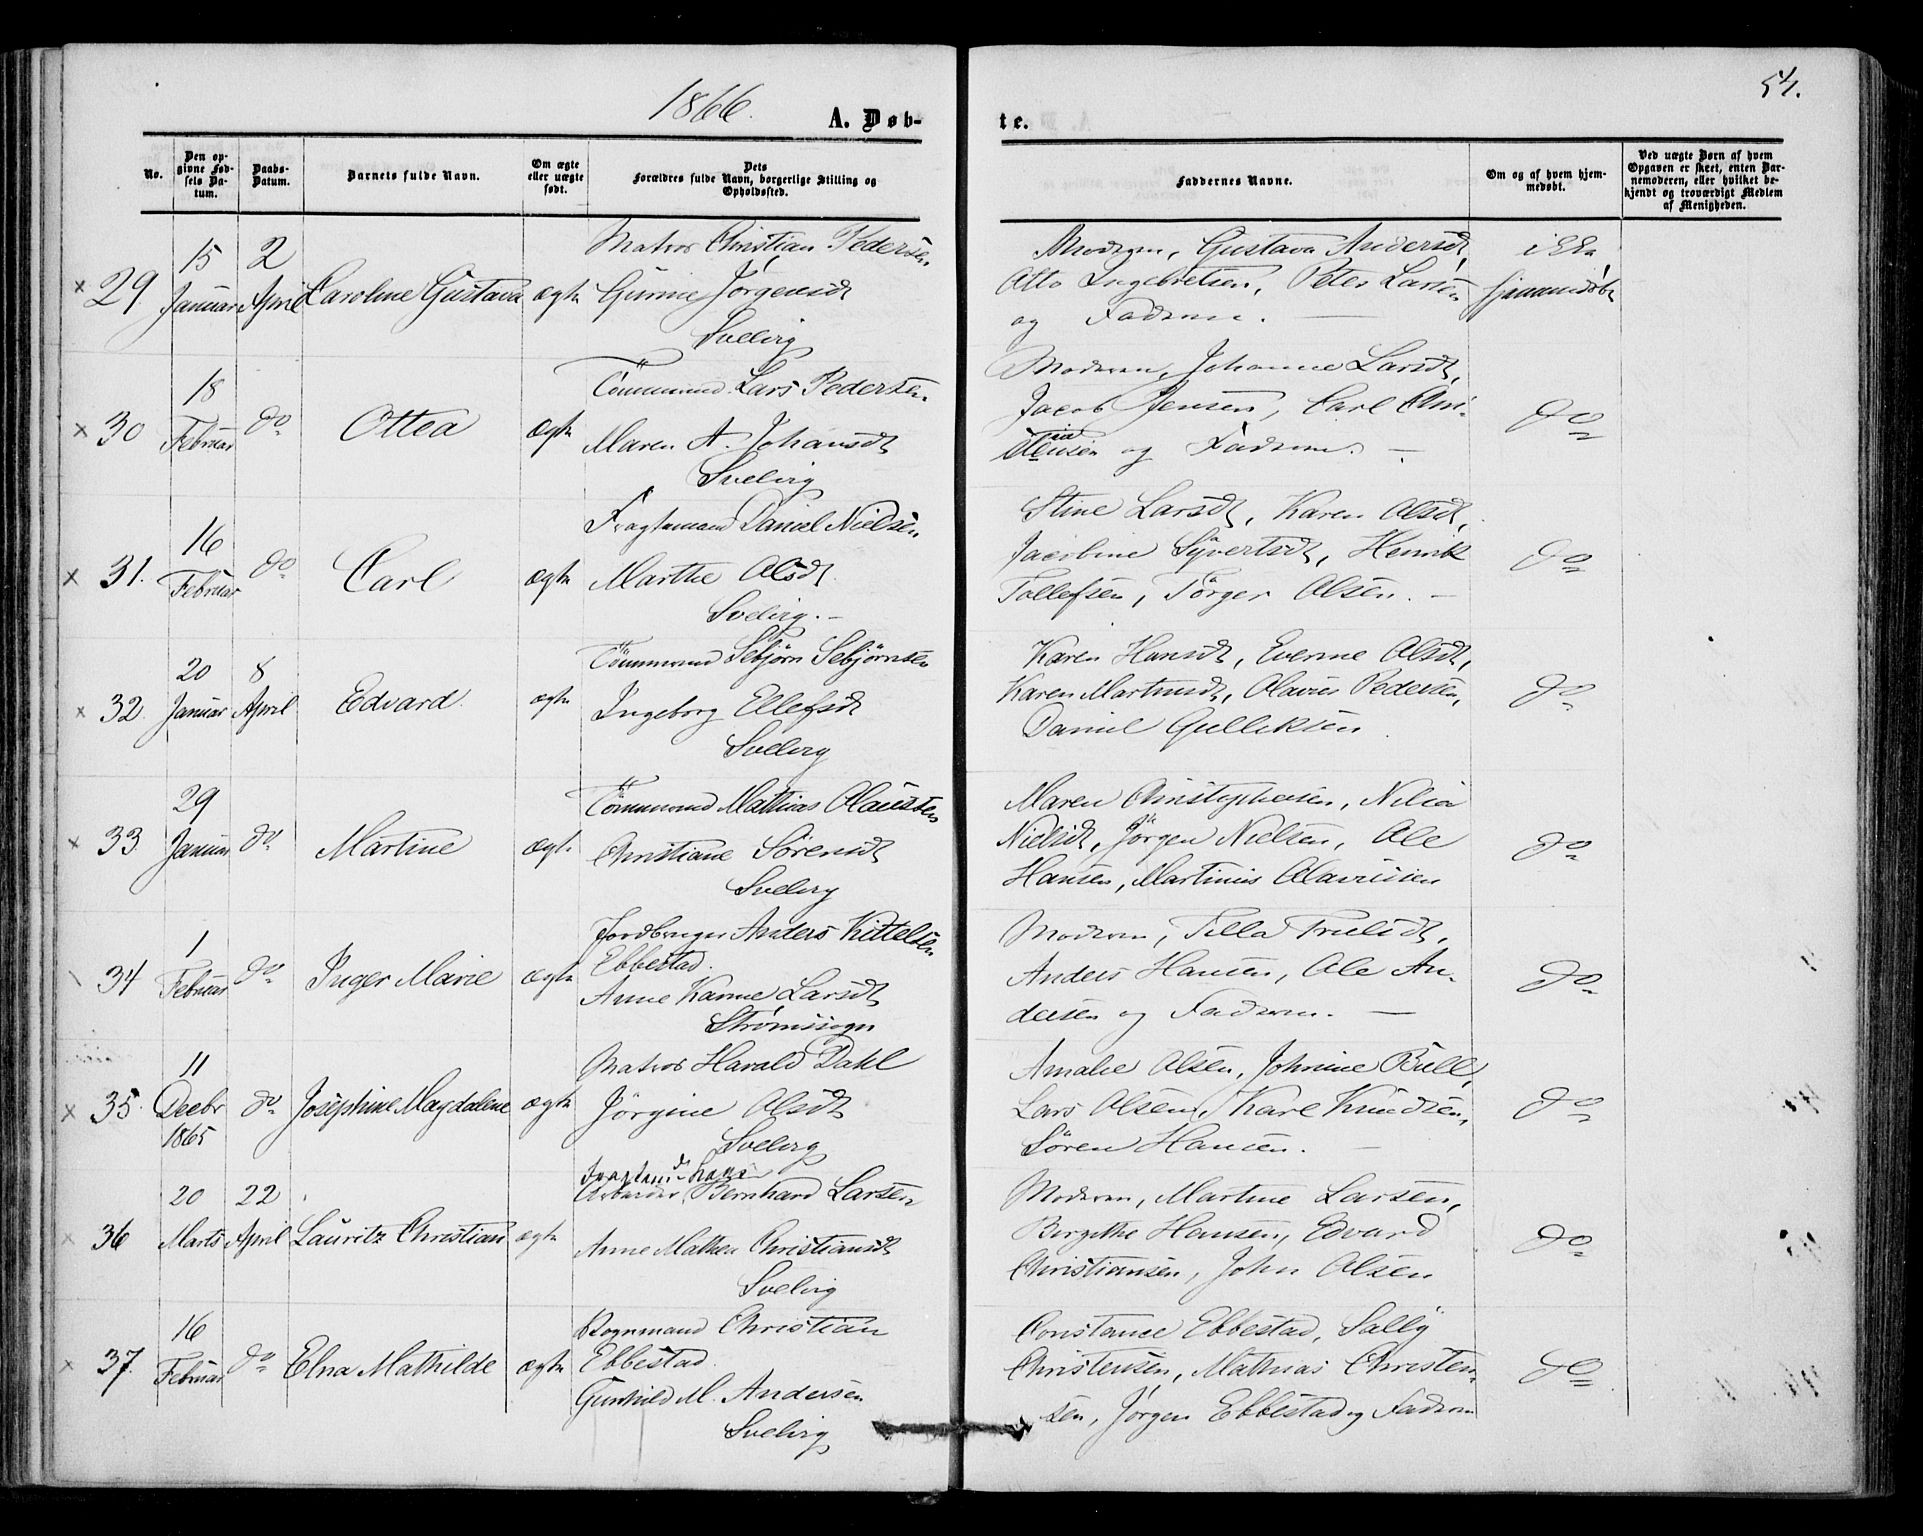 1866.
54.
A. Døb-
te.
No.
Den op-
givne Fød-
sels Da-
tum.
Daabs-
Datum.
Barnets fulde Navn.
Om ægte
eller uægte
født.
Dets
Forældres fulde Navn, borgerlige Stilling og
Opholdssted.
Faddernes Navne.
Om og af hvem hjem-
medøbt.
Ved uægte Børn af hvem
Opgaven er skeet, enten Bar-
nemoderen, eller hvilket be-
kjendt og troværdigt Medlem
af Menigheden.
× 29.
15
Januar
2
April
Caroline Gustava
ægte
Matros Christian Pedersen
Gurine Jørgensdt
Svelvig
Moderen, Gustava Andersdt,
Otto Ingebretsen, Peter Larsen
og Faderen.
ikke
hjemmedøbt
× 30
18
Februar
do
Ottea
ægte
Tømmermd Lars Pedersen
Maren A. Johansdt
Svelvig
Moderen, Johanne Larsdt,
Jacob Jensen, Carl Chri-
stiansen og Faderen.
do
× 31.
16
Februar
do
Carl
ægte
Fragtemand Daniel Nielsen
Marthe Olsdt
Svelvig.
Stine Larsdt, Karen Olsdt,
Jacobine Syvertsdt, Henrik
Tollefsen, Törger Olsen.
do
× 32.
20
Januar
8
April
Edvard.
ægte
Tømmermd Sebjørn Sebjørnsen
Ingeborg Ellefsdt
Svelvig
Karen Hansdt, Everine Olsdt,
Karen Martinsdt, Olavus Pedersen,
Daniel Gulliksen.
do
× 33.
29
Januar
do
Martine
ægte
Tømmermd Mathias Olaussen
Christiane Sørensdt
Svelvig
Maren Christophersen,
Nielsdt, Jørgen Nielsen, Ole
Hansen, Martinus Olavessen
do
34
1
Februar
do
Inger Marie
ægte
Jordbruger Anders Kittelsen
Ebbestad.
Anne Karine Larsdt
Strømssogn
Moderen, Trulsdt,
Anders Hansen, Ole An-
dersen og Faderen.
do
× 35.
11
Decbr
1865
do
Josephine Magdalene
ægte
Matros Harald Dahl
Jørgine Olsdt
Svelvig
Amalie Olsen, Johnine Bull,
Lars Olsen, Karl Knudsen,
Søren Hansen.
do
36
20
Marts
22
April
Lauritz Christian
ægte
Fragtemd Hans
Arbeider Bernhard Larsen
Anne Mathea Christiansdt
Svelvig
Moderen, Martine Larsen,
Birgithe Hansen, Edvard
Christiansen, John Olsen
do
× 37.
16
Februar
do
Elna Mathilde
ægte
Vognmand Christian
Ebbestad.
Gunhild M. Andersen
Svelvig
Constance Ebbestad, Sally
Christensen, Mathias Christen-
sen, Jørgen Ebbestad og Faderen
do